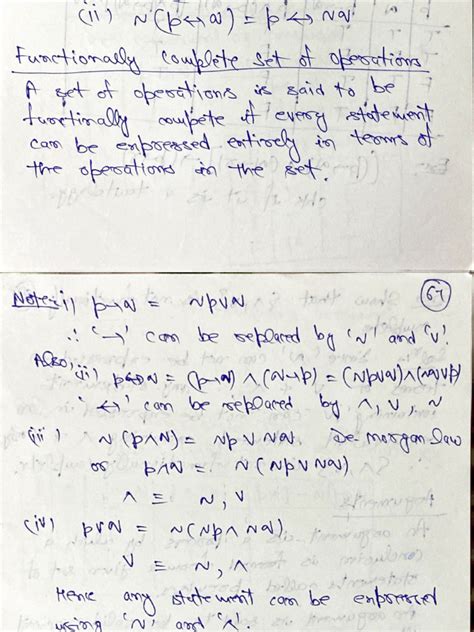 (ii) ~(p↔q) = p ↔ ~q
Functionally complete set of operations
A set of operations is said to be
functinally compete if every statement
can be expressed entirely in terms of
the operations in the set.
67
Note:- i) p→q ≡ ~p∨q
∴ '→' can be replaced by '~' and '∨'.
Also, ii) p↔q = (p→q) ∧ (q→p) = (~p∨q)∧(~q∨p)
'↔' can be replaced by ∧, ∨, ~
(iii) ~(p∧q) = ~p ∨ ~q De-morgan law
or p∧q = ~(~p∨ ~q)
∧ ≡ ~, ∨
(iv) p∨q ≡ ~(~p∧ ~q)
∨ ≡ ~, ∧
Hence any statement can be expressed
using '~' and '∧'.